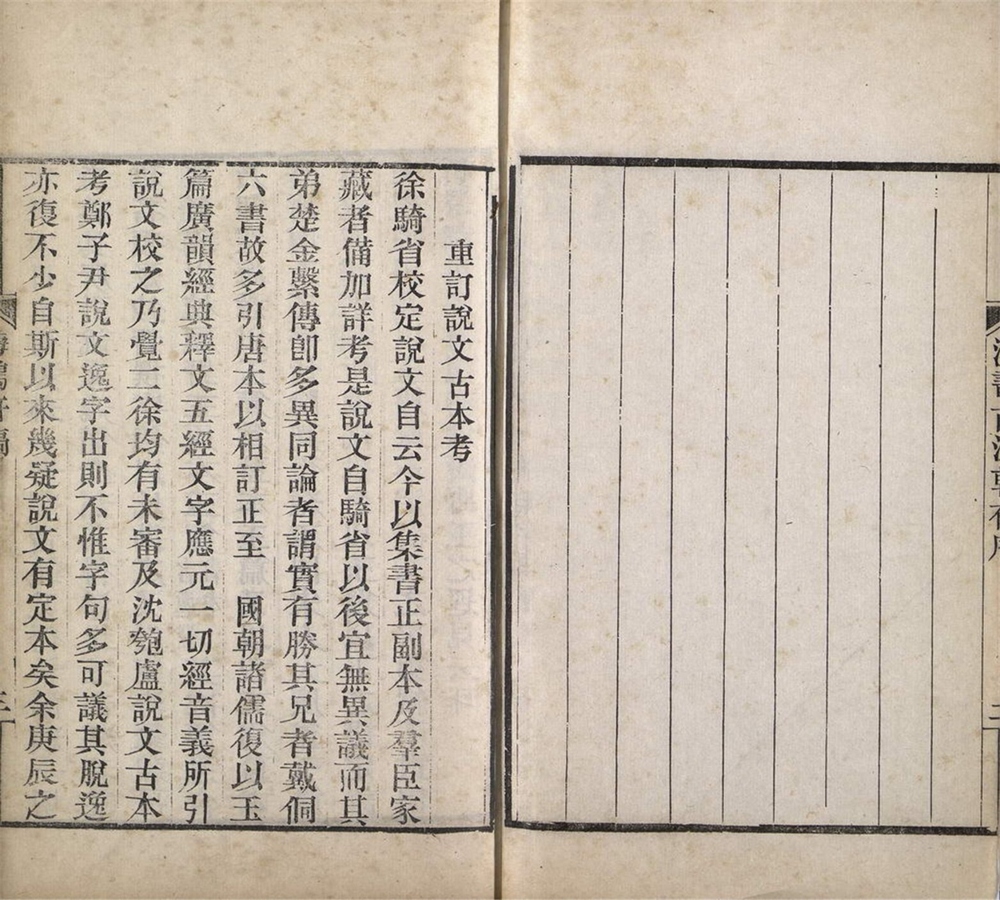 重訂說文古本考
徐騎省校定說文自云今以集書正副本及羣臣家
藏者備加詳考是說文自騎省以後宜無異議而其
弟楚金繫傳卽多異同論者謂實有勝其兄者戴侗
六書故多引唐本以相訂正至　國朝諸儒復以玉
篇廣韻經典釋文五經文字應元一切經音義所引
說文校之乃覺二徐均有未審及沈匏盧說文古本
考鄭子尹說文逸字出則不惟字句多可議其脫逸
亦復不少自斯以來幾疑說文有定本矣余庚辰之